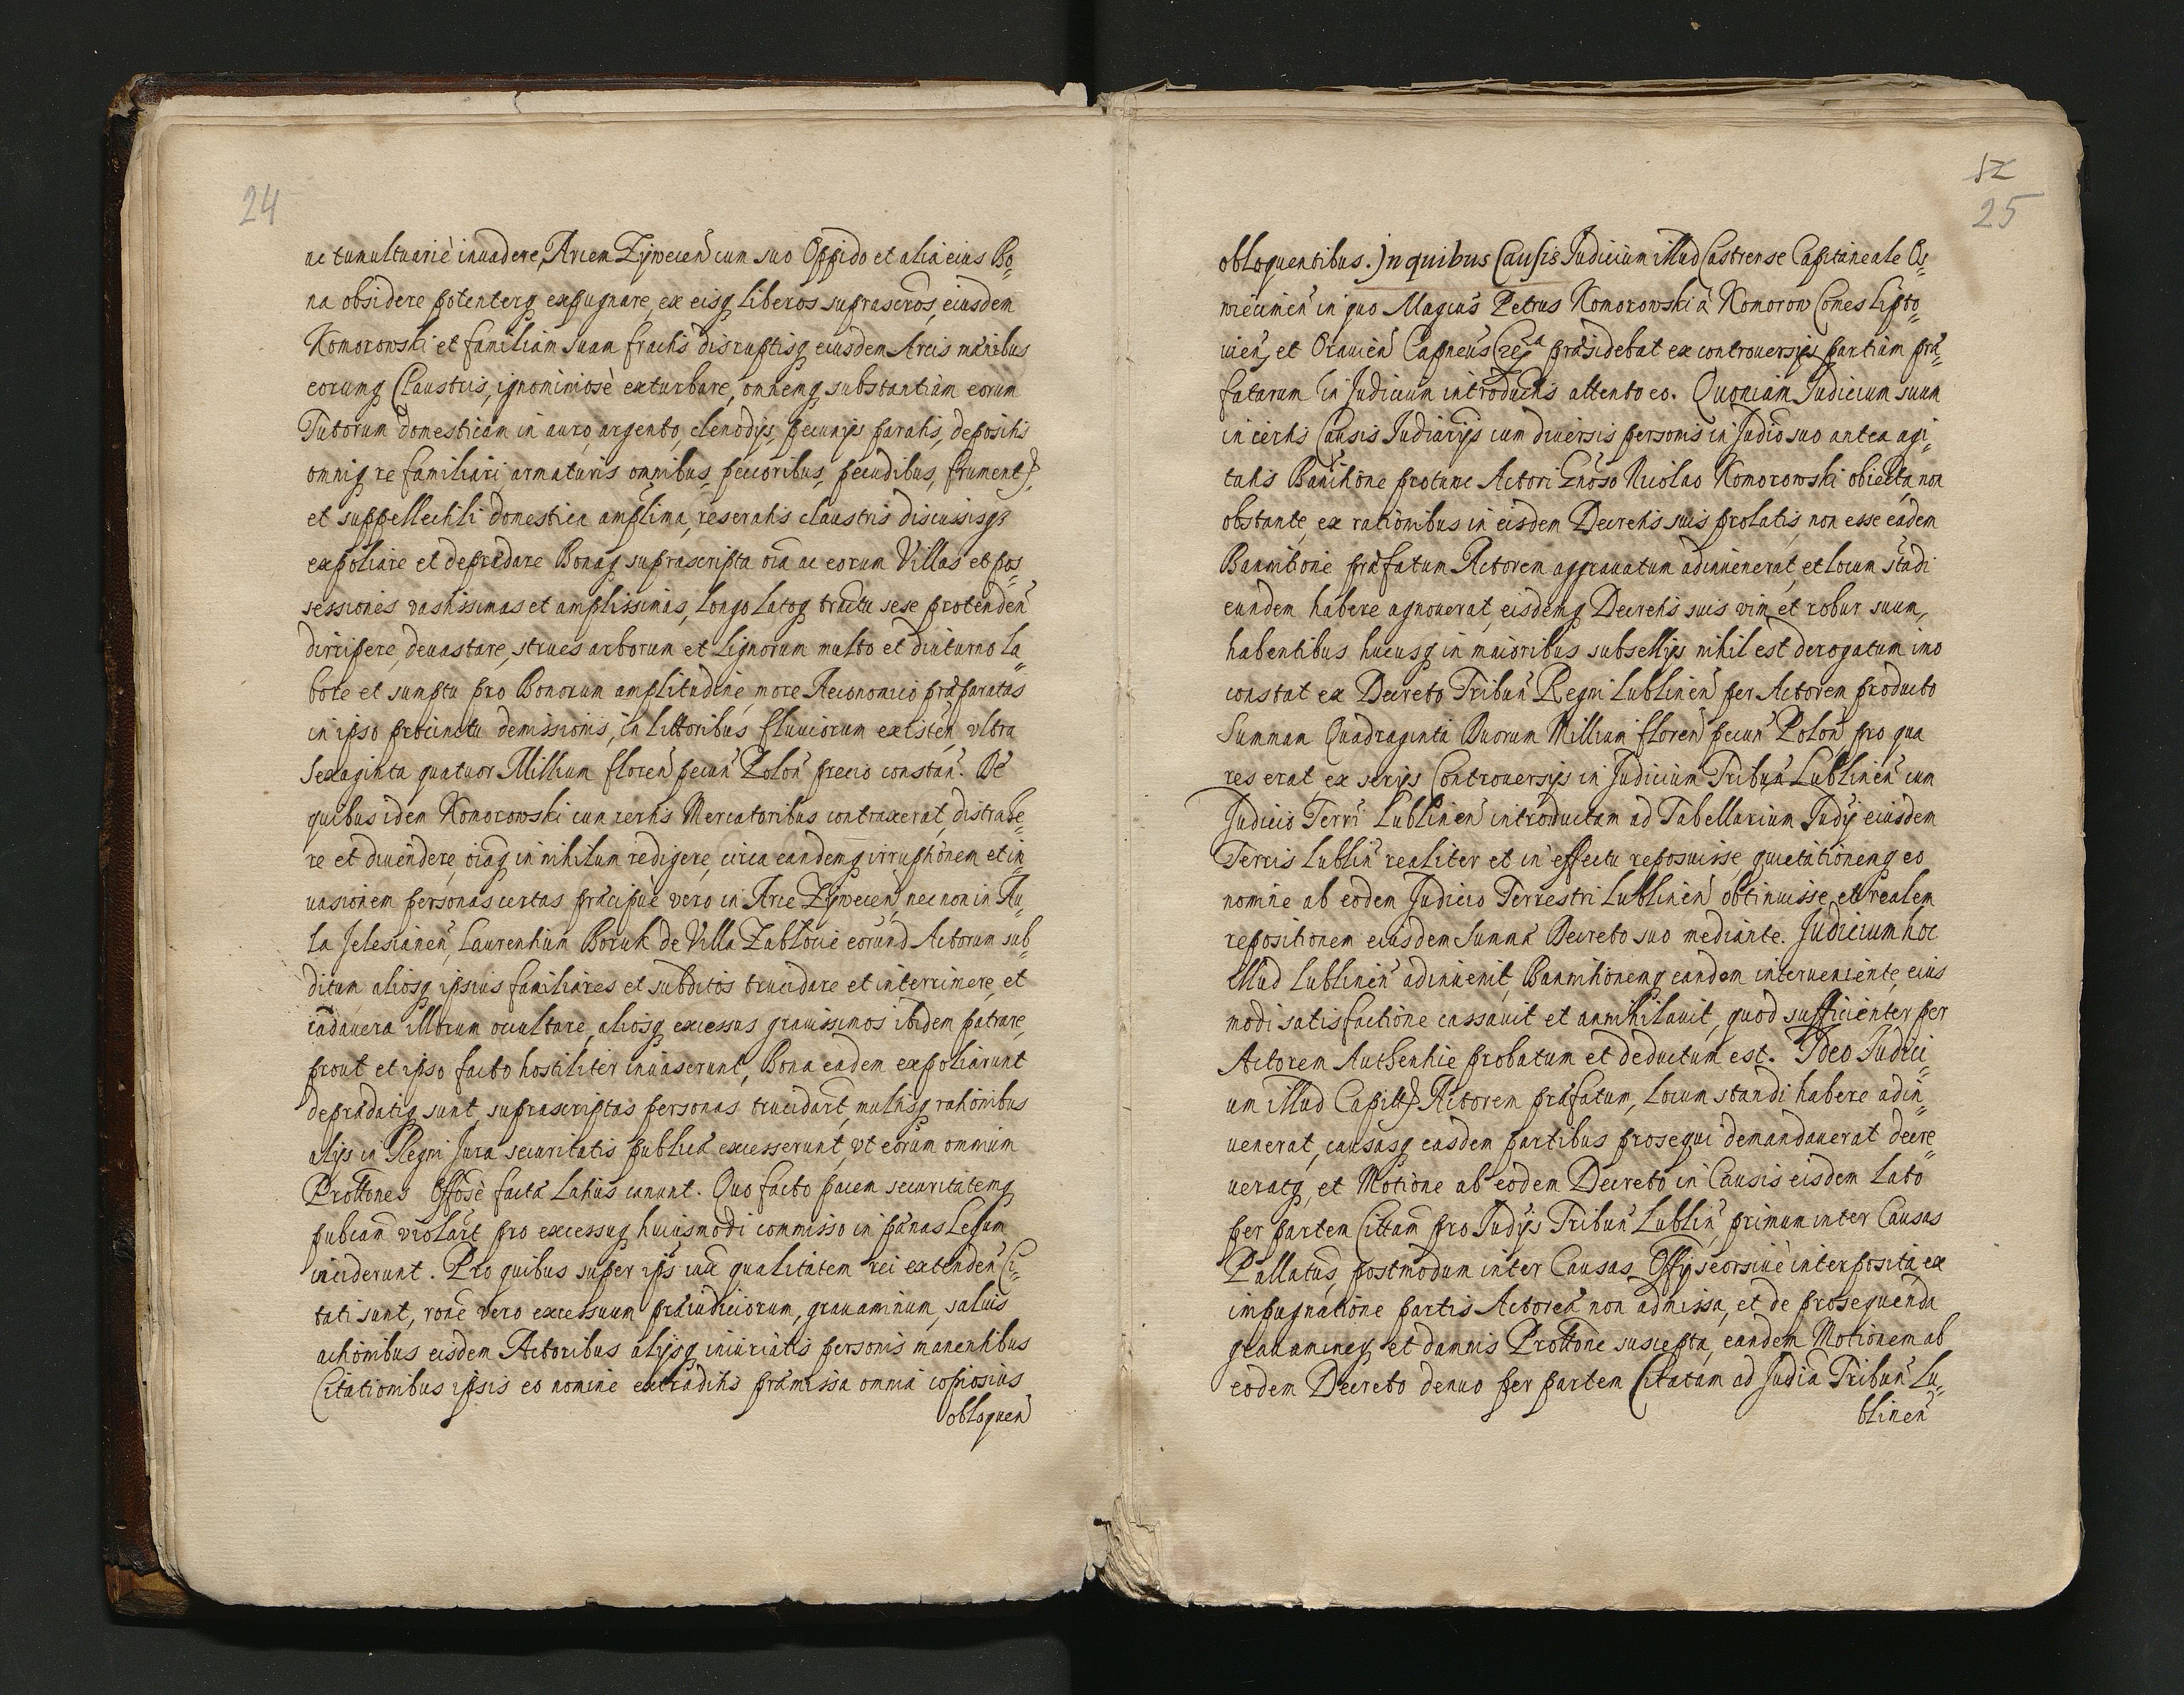 24
ac tumultuariè inuadere, Arcem Zÿwecen̄ cum suo Oppido et alia eius Bo„
na obsidere potenterq̨ expugnare, ex eisq̨ liberos suprascrōs, eiusdem
Komorowski et familiam suam fractis disruptisq̨ eiusdem Arcis manibus
eorumq̨ Claustris, ignominiosè exturbare, omnemq̨ substantiam eorum
Tutorum domesticam in auro, argento, clenodÿs, pecunÿs paratis, depositis
omniq̨ re familiari, armaturis omnibus, peccoribus, pecudibus, frument͛
et suppellectili domestica amplīma, reseratis claustris discussisq3
expoliare et deprædare Bonaq̨ suprascripta oīa ac eorum Villas et pos„
sessiones vastissimas et amplissimas, longo latoq̨ tractu sese protenden̄
dirripere, deuastare, strues arborum et lignorum multo et diuturno la„
bore et sumptu pro Bonorum amplitudine, more Aeconomico præparatas
in ipso procinctu demissionis, in littoribus fluuiorum existen̄ vltra
Sexaginta quatuor Millium floren̄ pecun̄ Polon̄ precio constan̄. De
quibus idem Komorowski cum certis Mercatoribus contraxerat, distrahe„
re et diuendere, oīaq̨ in nihilum redigere, circa eandemq̨ irruptionem et in„
uasionem personas certas præcipuè vero in Arce Zÿwecen̄, nec non in Au„
la Jelesianen̄, Laurentium Boruk de Villa Zablocie eorund̄ Actorum sub„
ditum aliosq̨ ipsius familiares et subditos trucidare et interrimere, et
cadauera illorum occultare, aliosq̨ excessus grauissimos ibidem patrare,
prout et ipso facto hostiliter inuaserunt, Bona eadem expoliarunt
deprædatiq̨ sunt, suprascriptas personas trucidar̄t, multisq̨ rationibus
alÿs in Regni Jura securitatis publicæ excesserunt, vt eorum omnium
Prottōnes Offōsè factæ latius canunt. Quo facto pacem securitatemq̨
pubcam̄ violar̄t pro excessuq̨ huiusmodi commisso in pænas Legum
inciderunt. Pro quibus super ips̄ iuā qualitatem rei extenden̄ Ci„
tati sunt, rōne vero excessuum præiudiciorum, grauaminum, saluis
actionibus eisdem Actoribus alÿsq̨ iniuriatis personis manentibus
Citationibus ipsis eo nomine extraditis præmissa omnia copiosius
obloquen̄
52
25
obloquentibus. Jn quibus Causis Judicium illud Castrense Capitaneale Os„
wiecimen̄ in quo Magcus Petrus Komorowski à Komorow Comes Lipto„
uien̄, et Orauien̄ Capneus Cze͛ præsidebat ex controuersÿs partium præ„
fatarum in Judicium introductis attento eo. Quoniam Judicium suum
in certis Causis Judiciarÿs cum diuersis personis in Judio suo antea agi„
tatis Banitione protunc Actori Gnōso Nicolao Komorowski obiecta, non
obstante, ex rationibus in eisdem Decretis suis prolatis, non esse eadem
Bannitione præfatum Actorem aggrauatum adinuenerat, et locum stādi
eundem habere agnouerat, eisdemq̨ Decretis suis vim et robur suum,
habentibus hucusq̨ in maioribus subsellÿs nihil est derogatum imo
constat ex Decreto Tribun̄ Regni Lublinen̄ per Actorem producto
Summam Quadraginta Duorum Millium floren̄ pecun̄ Polon̄ pro qua
res erat, ex serÿs Controuersÿs in Judicium Tribun̄ Lublinen̄ cum
Judicio Terrī Lublinen̄ introductam ad Tabellarium Judÿ eiusdem
Terris Lublin̄ realiter et in effectu reposuisse, quietationemq̨ eo
nomine ab eodem Judicio Terrestri Lublinen̄ obtinuisse, et realem
repositionem eiusdem Summæ Decreto suo mediante. Judicium hoc
illud Lublinen̄ adinuenit, Bannitionemq̨ eandem interueniente, eius
modi satisfactione cassauit et annihilauit, quod sufficienter per
Actorem Authentice probatum et deductum est. Ideo Judici„
um illud Capitl͛ Actorem præfatum, Locum standi habere adin„
uenerat, causasq̨ easdem partibus prosequi demandauerat decre„
ueratq̨, et Motione ab eodem Decreto in Causis eisdem Lato
per partem Cittam̄ pro Judÿs Tribun̄ Lublin̄, primum inter Causas
Pallatus̄, postmodum inter Causas Offÿ seorsiuè interposita, ex
impugnatione partis Actoreæ non admissa, et de prosequenda
grauamineq̨ et damnis Prottōne suscepta, eandem Motionem ab
eodem Decreto denuo per partem Citatam ad Judia Tribun̄ Lu„
blinen̄